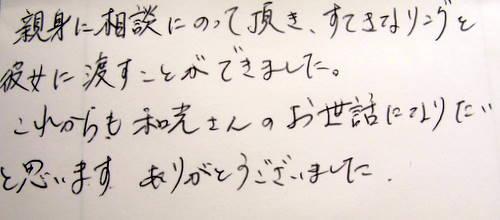 親身に相談にのって頂き、すてきなリングを
彼女に渡すことができました。
これからも和光さんのお世話になりたい
と思います ありがとうございました.